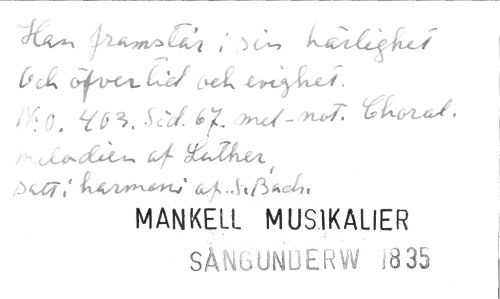 Han framstår i sin härlighet
Och öfver tid och evighet.
N:o. 403. Sid. 67. mel-not. Choral.
melodien af Luther,
satt i harmoni af S. Bach.
MANKELL MUSIKALIER
SÅNGUNDERW 1835